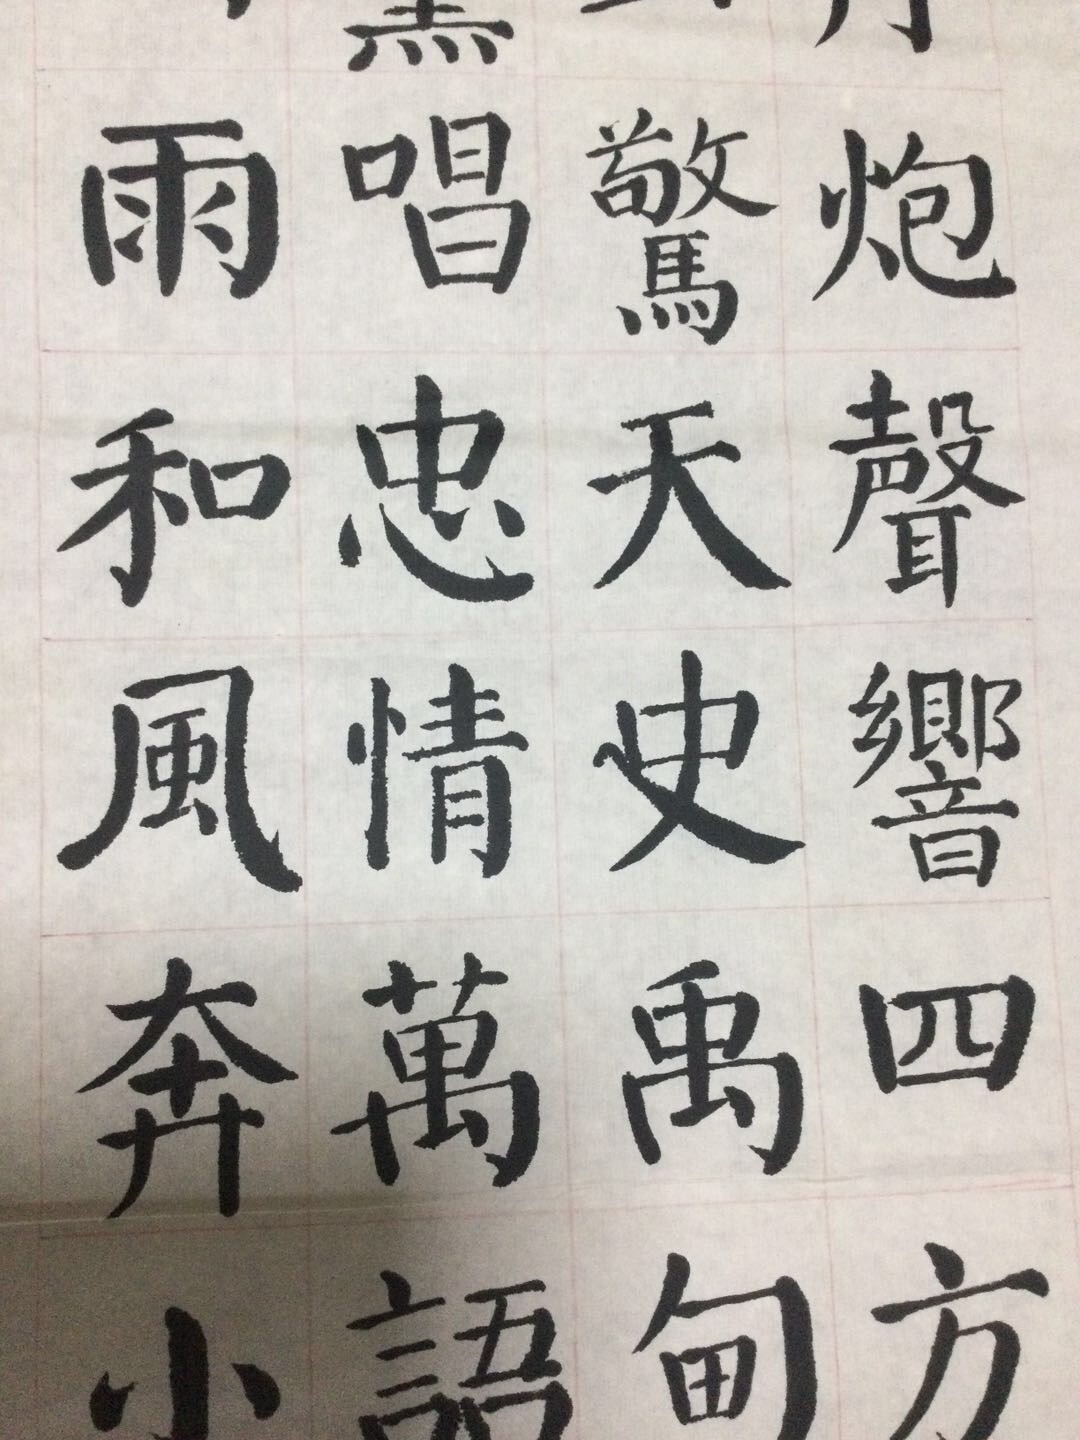 炮聲響四方
驚天史禹甸
唱忠情萬語
雨和風奔小